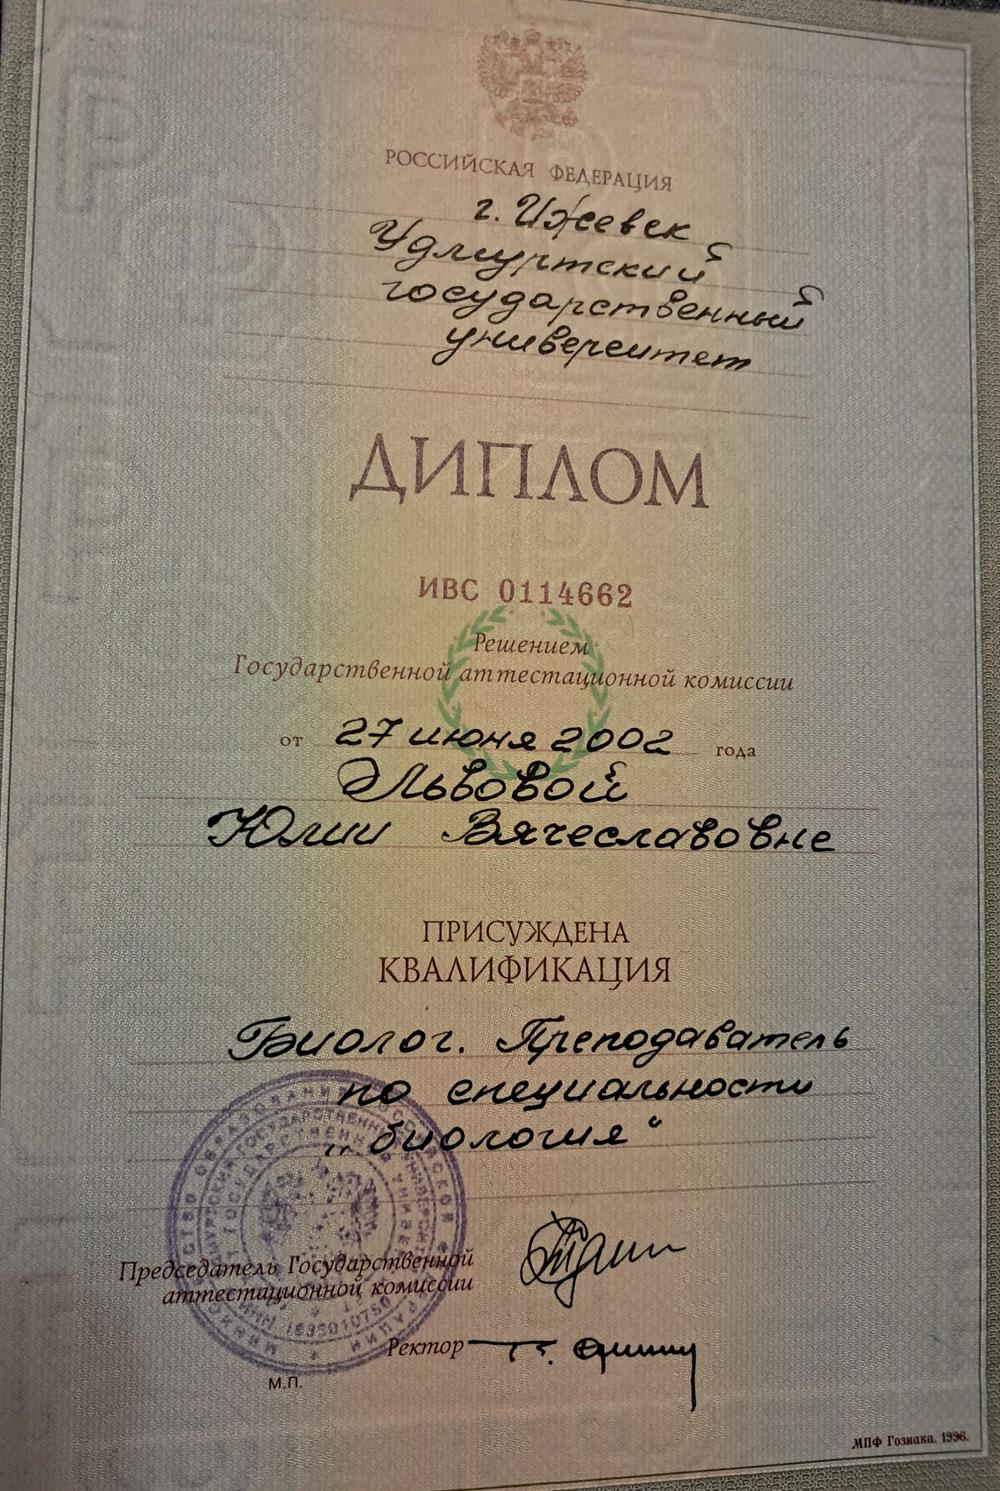 РОССИЙСКАЯ ФЕДЕРАЦИЯ
г. Ижевск
Удмуртский
государственный
университет
ДИПЛОМ
ИВС 0114662
Решением
Государственной аттестационной комиссии
от 27 июня 2002 года
Львовой
Юлии Вячеславовне
ПРИСУЖДЕНА
КВАЛИФИКАЦИЯ
Биолог. Преподаватель
по специальности
„биология“
Председатель Государственной
аттестационной комиссии
Ректор
М.П.
МПФ Гознака. 1996.